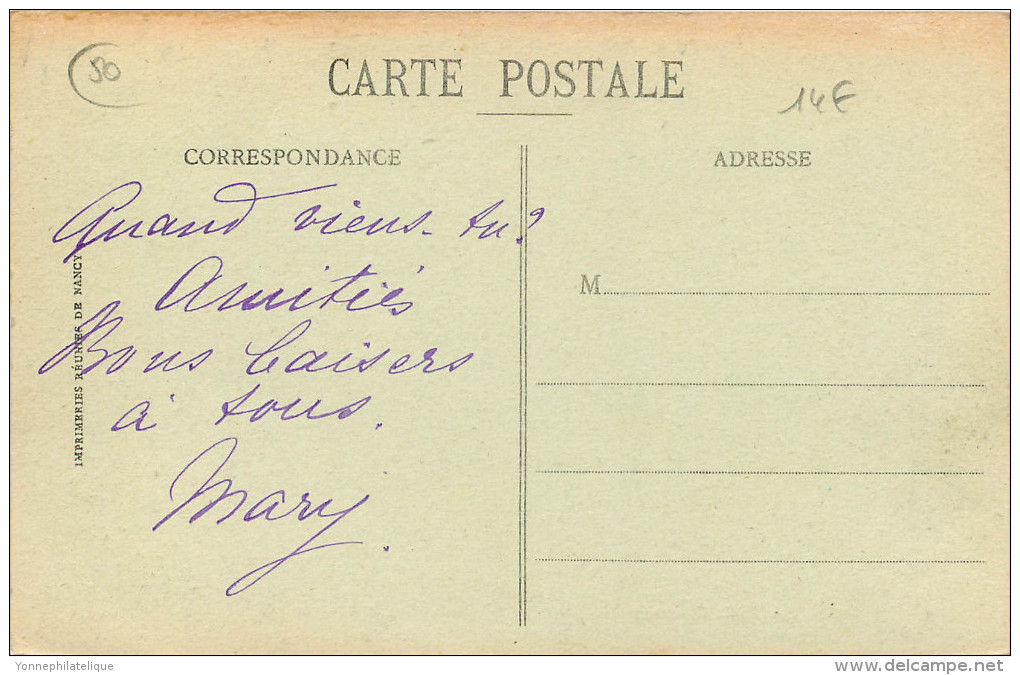 50
CARTE POSTALE
14€
CORRESPONDANCE
ADRESSE
Quand viens-tu?
Amitiés
Bons baisers
à tous.
Mary.
M
IMPRIMERIES RÉUNIES DE NANCY
Yonnephilatelique
www.delcampe.net